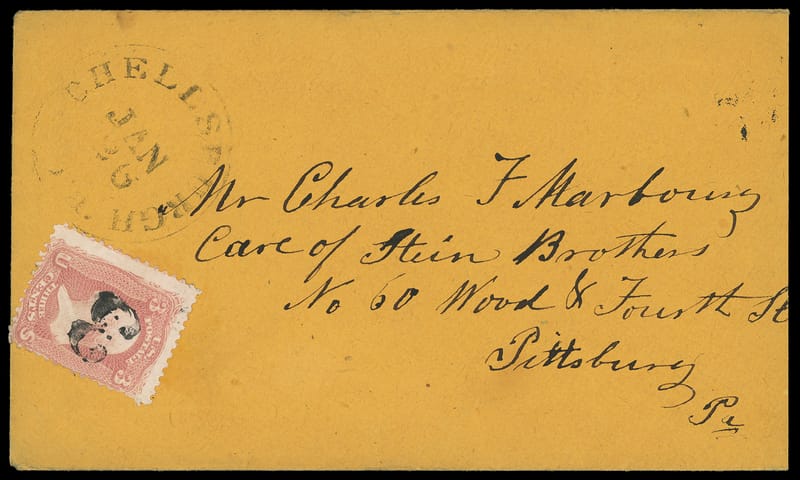 CHELLSBURGH
JAN
26
Mr Charles F Marbourg
Care of Stein Brothers
No 60 Wood & Fourth St
Pittsburg
Pa
U S
3 3
THREE CENTS
U.S. POSTAGE